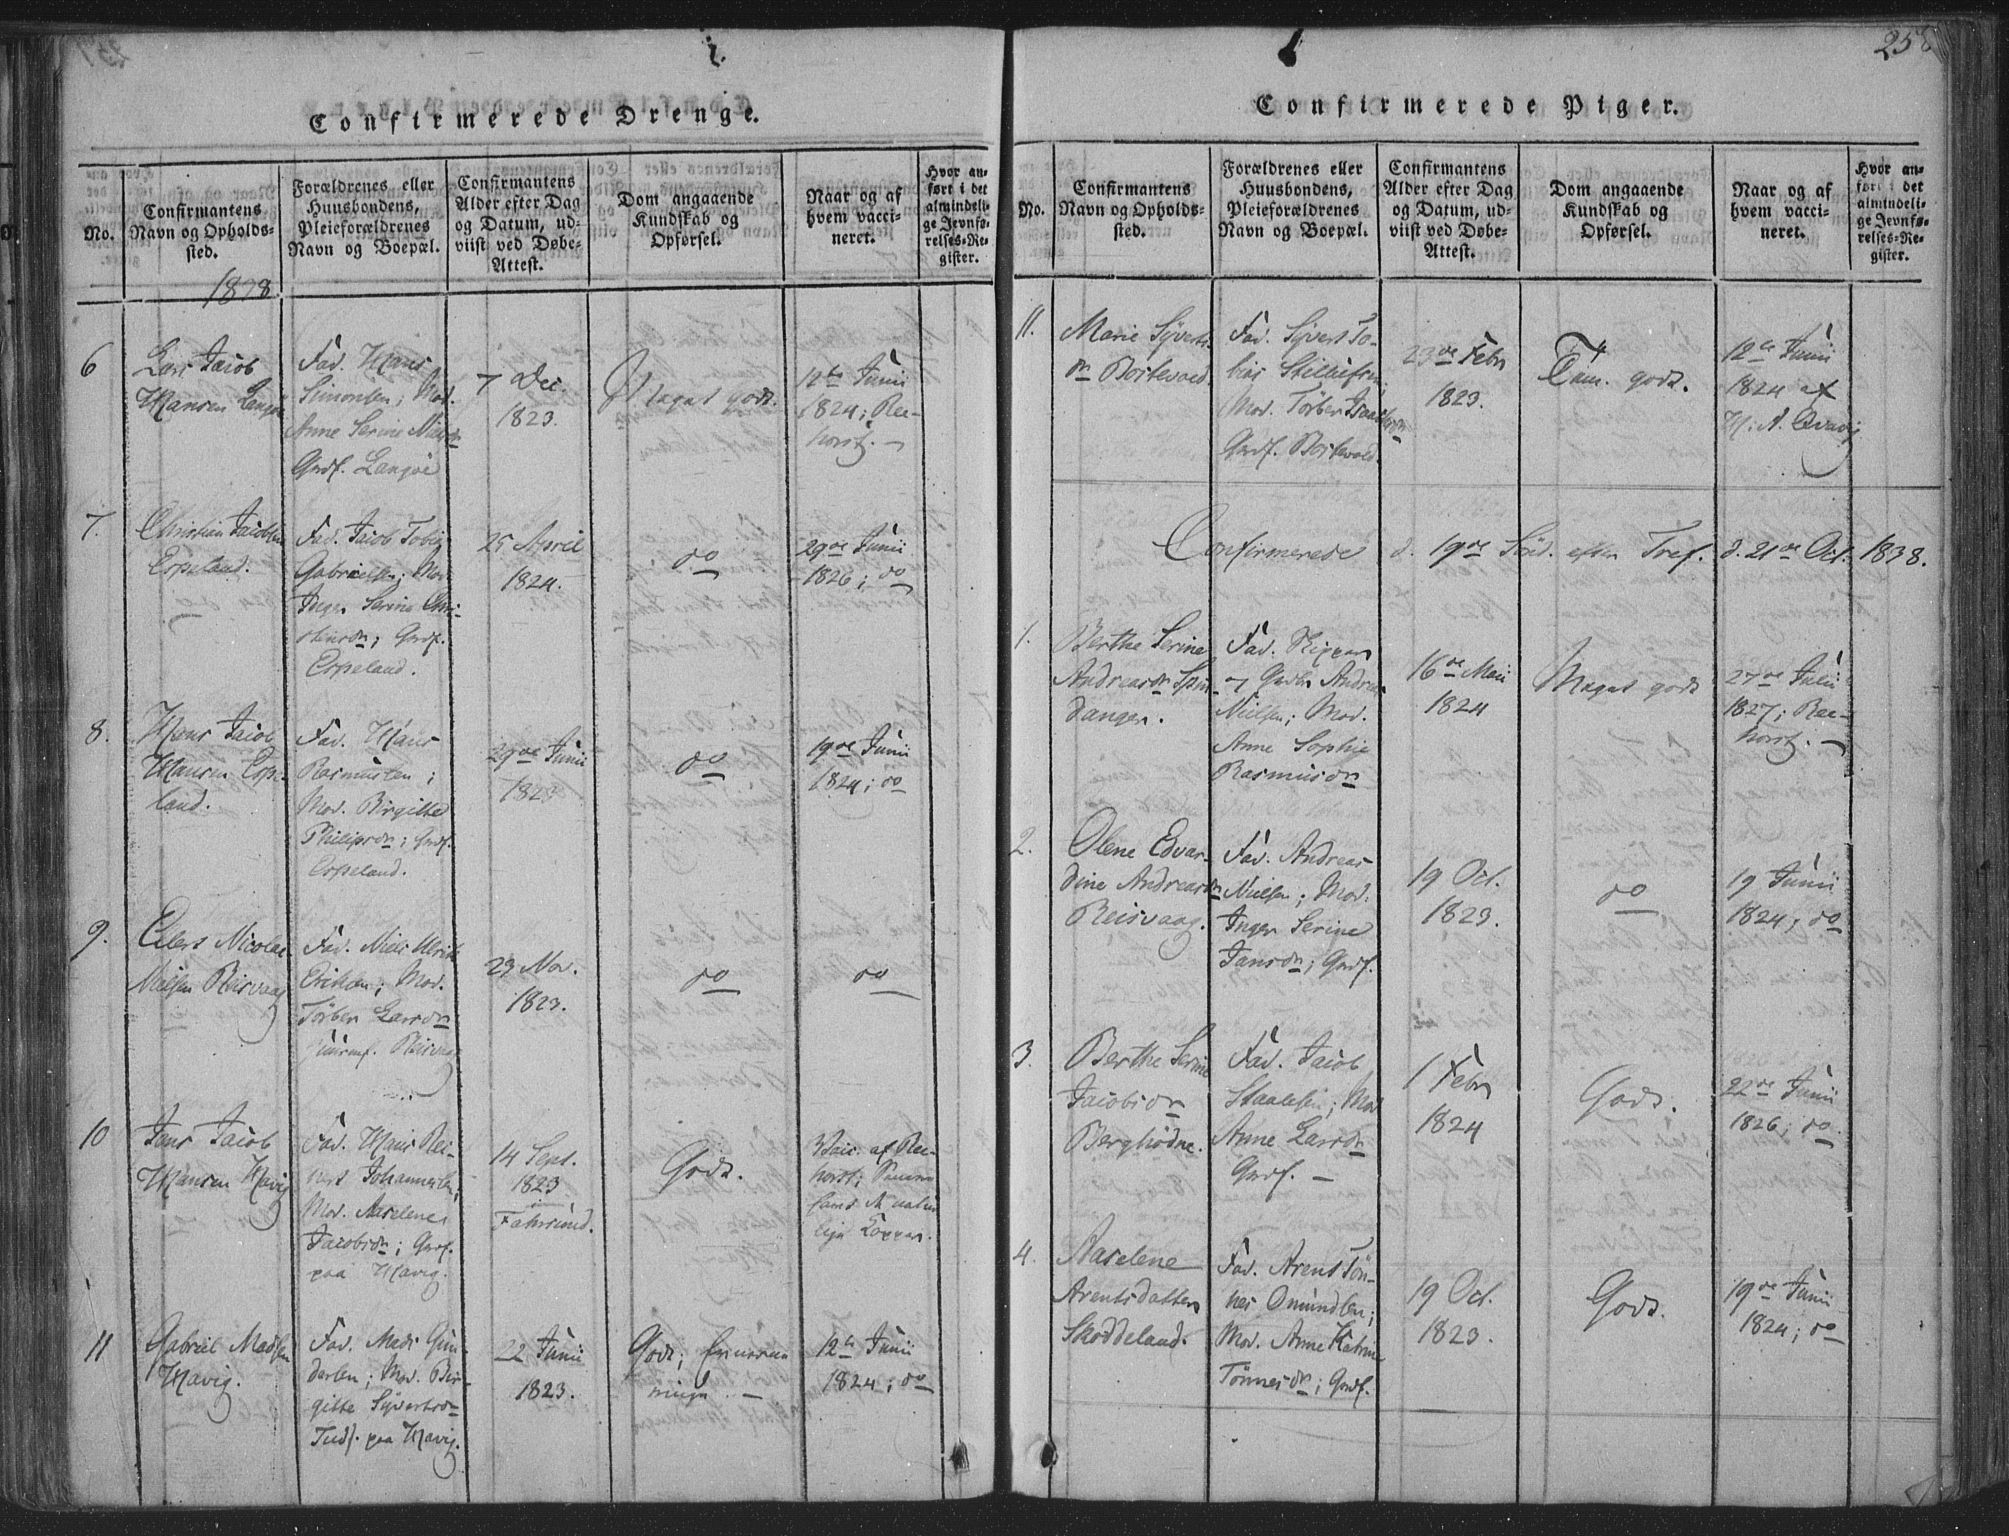 258
Confirmerede Drenge.
No.
Confirmantens
Navn og Opholds-
sted.
Forældrenes eller
Huusbondens,
Pleieforældrenes
Navn og Boepæl.
Confirmantens
Alder efter Dag
og Datum, ud-
viist ved Døbe-
Attest.
Dom angaaende
Kundskab og
Opførsel.
Naar og af
hvem vacci-
neret.
Hvor an-
ført i det
almindeli-
ge Jevnfø-
relses-Re-
gister.
1838.
6
Lars Jacob
Hansen Langøe
Fad. Hans
Simonsen; Mod.
Anne Serine Nielsdr
Grdf. Langøe
7 Dec
1823.
Meget godt.
12te Junii
1824; Ree-
horst. —
7.
Christian Jacobsen
Espeland.
Fad. Jacob Tobias
Gabrielsen; Mod.
Inger Serine Chri-
stensdr; Grdf.
Espeland.
25 April
1824.
do
29de Junii
1826; do
8.
Hans Jacob
Hansen Espe-
land.
Fad. Hans
Rasmussen;
Mod. Birgitte
Philipsdr; Grdf.
Espeland.
29de Junii
1823
do
19de Junii
1824; do
9.
Eilert Nicolai
Nielsen Reisvaag
Fad. Niels Ulrik
Eriksen; Mod.
Tørber Larsdr
Huusmf. Reisvaag
23 Nov.
1823.
do
do
10
Jens Jacob
Hansen Havig
Fad. Hans Rei-
nert Johannesen;
Mod. Aaselene
Jacobsdr; Grdf.
paa Havig.
14 Sept.
1823
i
Fahrsund.
Godt.
Vacc. af Ree-
horst; Samme
havt Natur-
lige Kopper.
11
Gabriel Madsen
Havig.
Fad. Mads Gun-
dersen; Mod. Bir-
gitte Syvertsdr
Inds. paa Havig.
22 Junii
1823.
Godt;
12te Junii
1824; do
Confirmerede Piger.
No.
Confirmantens
Navn og Opholds-
sted.
Forældrenes eller
Huusbondens,
Pleieforældrenes
Navn og Boepæl.
Confirmantens
Alder efter Dag
og Datum, ud-
viist ved Døbe-
Attest.
Dom angaaende
Kundskab og
Opførsel.
Naar og af
hvem vacci-
neret.
Hvor an-
ført i det
almindeli-
ge Jevnfø-
relses-Re-
gister.
11.
Marie Syverts-
dr Borkevold.
Fad. Syvert To-
bias Stillufsen;
Mod. Tørber Isaachsdr
Grdf. Borkevold.
23de Febr
1823.
Tem. godt.
12te Junii
1824 af
H. A. Qvavig
Confirmerede d. 19de Sönd. efter Tref. d. 21de Oct. 1838.
1.
Berthe Serine
Andreasdr Spin-
dangen.
Fad. Skipper
og Grdbr Andreas
Nielsen; Mod.
Anne Sophie
Rasmusdr
16de Maii
1824
Meget godt
27de Julii
1827; Ree-
horst. —
2.
Olene Edvar-
dine Andreasdr
Reisvaag.
Fad. Andreas
Nielsen; Mod.
Inger Serine
Jansdr; Grdf.
19 Oct.
1823.
do
19 Junii
1824; do
3.
Berthe Serine
Jacobsdr
Berghødne.
Fad. Jacob
Staalesen; Mod
Anne Larsdr
Grdf. —
1 Febr
1824
Godt.
22de Junii
1826; do
4.
Aaselene
Arentsdatter
Skoddeland.
Fad. Arent Tön-
nes Omundsen;
Mod. Anne Katrine
Tönnesdr; Grdf.
19 Oct.
1823.
Godt.
19de Junii
1824; do